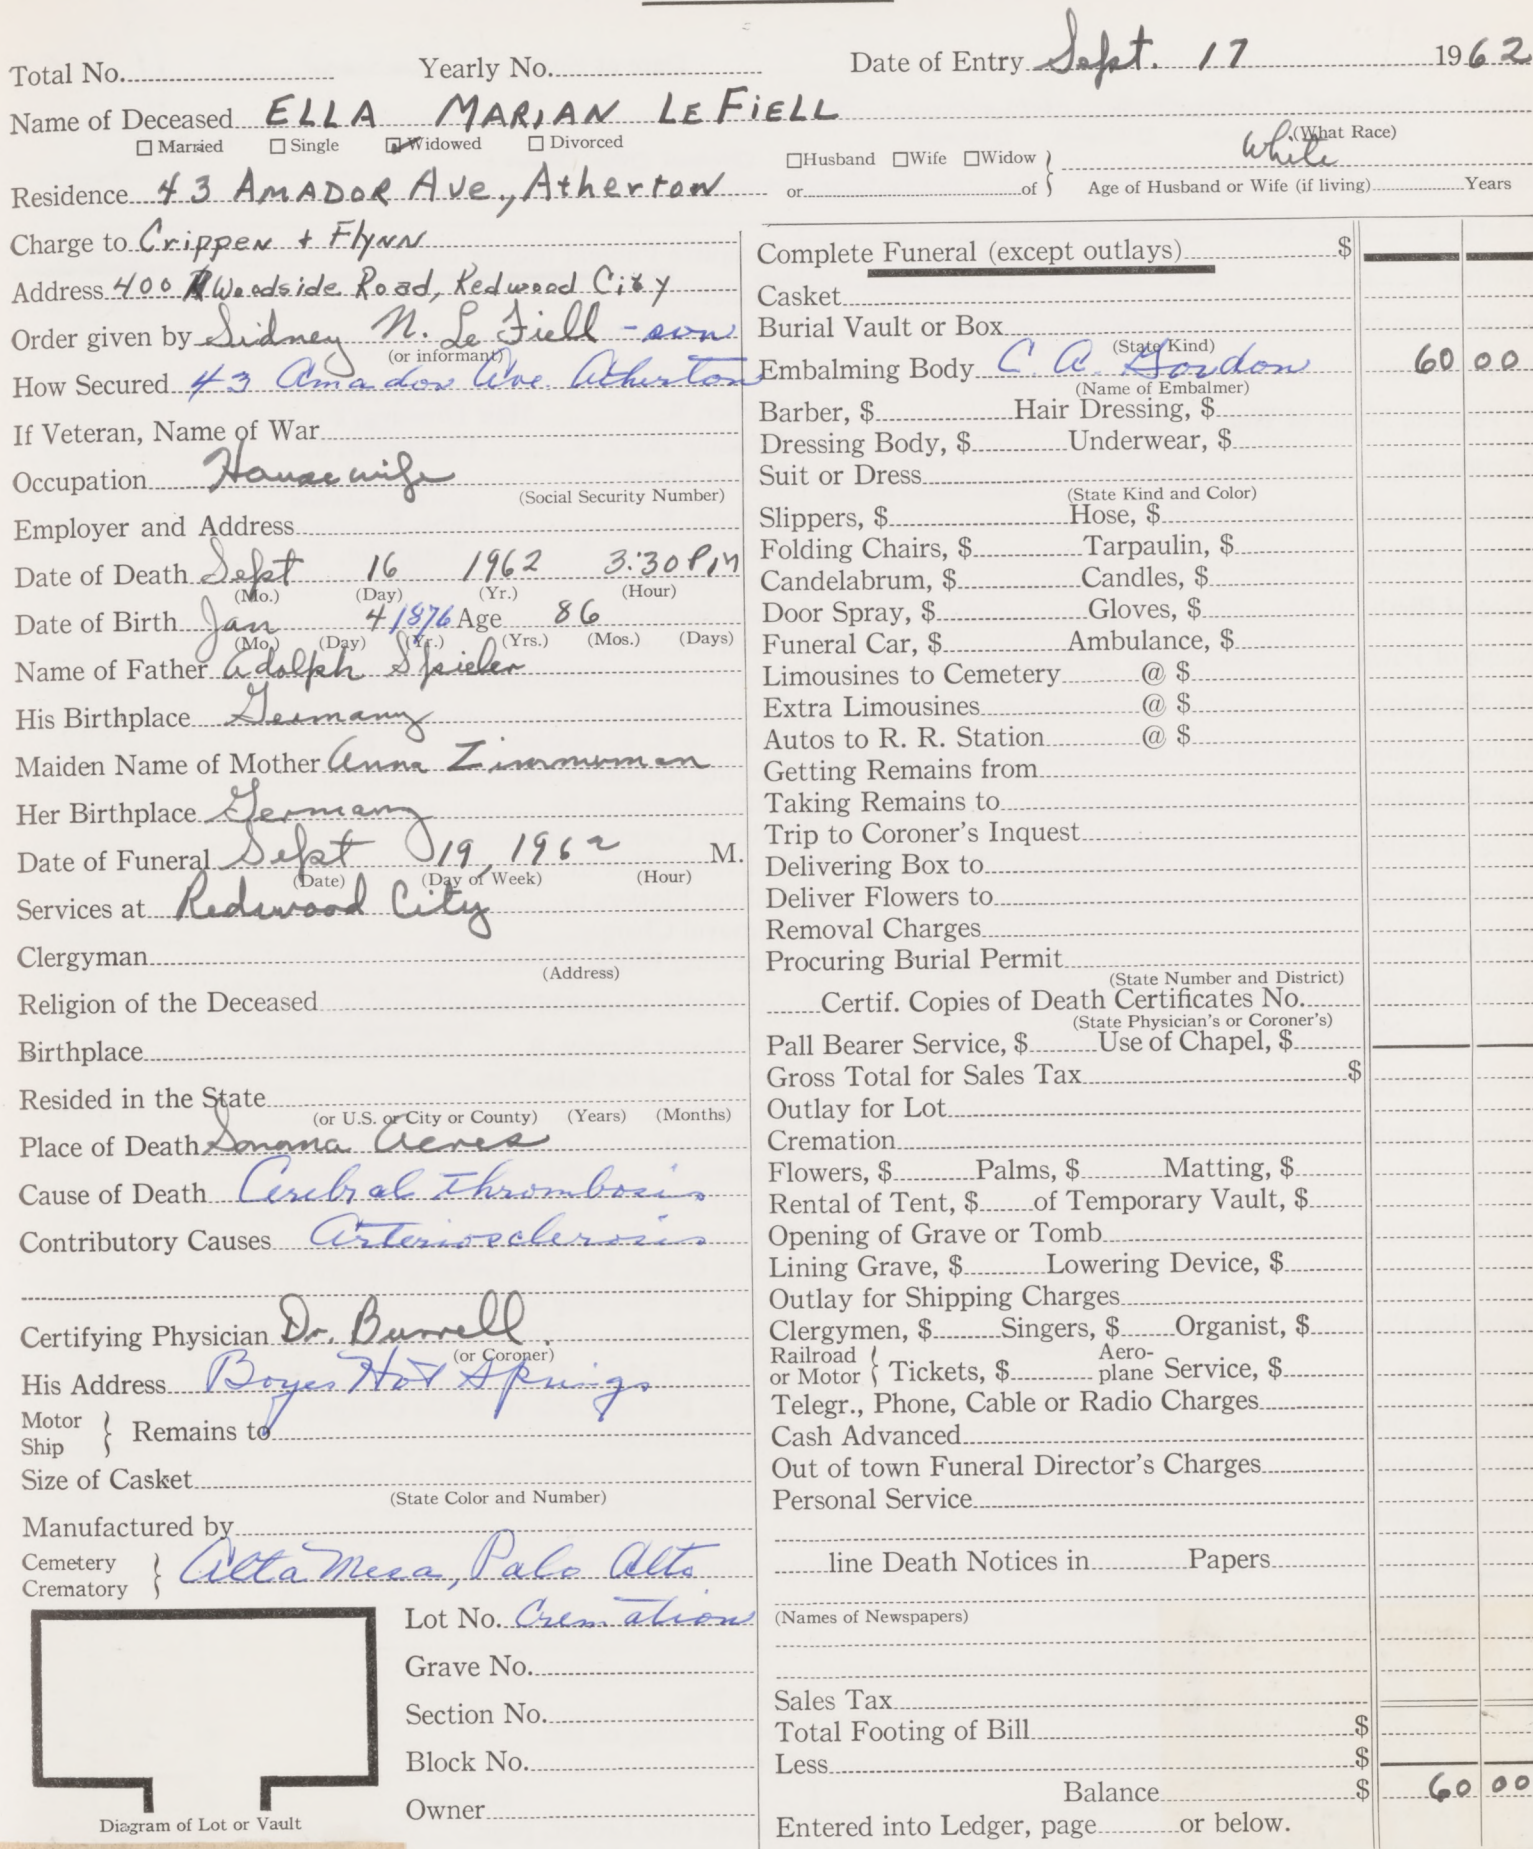 Total No. Yearly No. Date of Entry Sept. 17 1962
Name of Deceased ELLA MARIAN LEFIELL
☐ Married ☐ Single ☑ Widowed ☐ Divorced
(What Race)
White
☐Husband ☐Wife ☐Widow }
or of
Age of Husband or Wife (if living) Years
Residence 43 AMADOR AVE., Atherton
Charge to Crippen + Flynn
Address 400 Woodside Road, Redwood City
Order given by Sidney N. Le Fiell - son
(or informant)
How Secured 43 Amador Ave. Atherton
If Veteran, Name of War
Occupation Housewife
(Social Security Number)
Employer and Address
Date of Death Sept 16 1962 3:30 PM
(Mo.) (Day) (Yr.) (Hour)
Date of Birth Jan 4 1876 Age 86
(Mo.) (Day) (Yr.) (Yrs.) (Mos.) (Days)
Name of Father Adolph Spieler
His Birthplace Germany
Maiden Name of Mother Anna Zimmerman
Her Birthplace Germany
Date of Funeral Sept 19, 1962 M.
(Date) (Day of Week) (Hour)
Services at Redwood City
Clergyman
(Address)
Religion of the Deceased
Birthplace
Resided in the State
(or U.S. or City or County) (Years) (Months)
Place of Death Sonoma Acres
Cause of Death Cerebral thrombosis
Contributory Causes Arteriosclerosis
Certifying Physician Dr. Burrell
(or Coroner)
His Address Boyes Hot Springs
Motor
Ship } Remains to
Size of Casket
(State Color and Number)
Manufactured by
Cemetery
Crematory } Alta Mesa, Palo Alto
Lot No. Cremation
Grave No.
Section No.
Block No.
Owner
Diagram of Lot or Vault
Complete Funeral (except outlays) $
Casket
Burial Vault or Box
(State Kind)
Embalming Body C. A. Gordon 60 00
(Name of Embalmer)
Barber, $ Hair Dressing, $
Dressing Body, $ Underwear, $
Suit or Dress
(State Kind and Color)
Slippers, $ Hose, $
Folding Chairs, $ Tarpaulin, $
Candelabrum, $ Candles, $
Door Spray, $ Gloves, $
Funeral Car, $ Ambulance, $
Limousines to Cemetery @ $
Extra Limousines @ $
Autos to R. R. Station @ $
Getting Remains from
Taking Remains to
Trip to Coroner's Inquest
Delivering Box to
Deliver Flowers to
Removal Charges
Procuring Burial Permit
(State Number and District)
Certif. Copies of Death Certificates No.
(State Physician's or Coroner's)
Pall Bearer Service, $ Use of Chapel, $
Gross Total for Sales Tax $
Outlay for Lot
Cremation
Flowers, $ Palms, $ Matting, $
Rental of Tent, $ of Temporary Vault, $
Opening of Grave or Tomb
Lining Grave, $ Lowering Device, $
Outlay for Shipping Charges
Clergymen, $ Singers, $ Organist, $
Railroad
or Motor { Tickets, $ Aero-
plane Service, $
Telegr., Phone, Cable or Radio Charges
Cash Advanced
Out of town Funeral Director's Charges
Personal Service
line Death Notices in Papers
(Names of Newspapers)
Sales Tax
Total Footing of Bill $
Less $
Balance $ 60 00
Entered into Ledger, page or below.